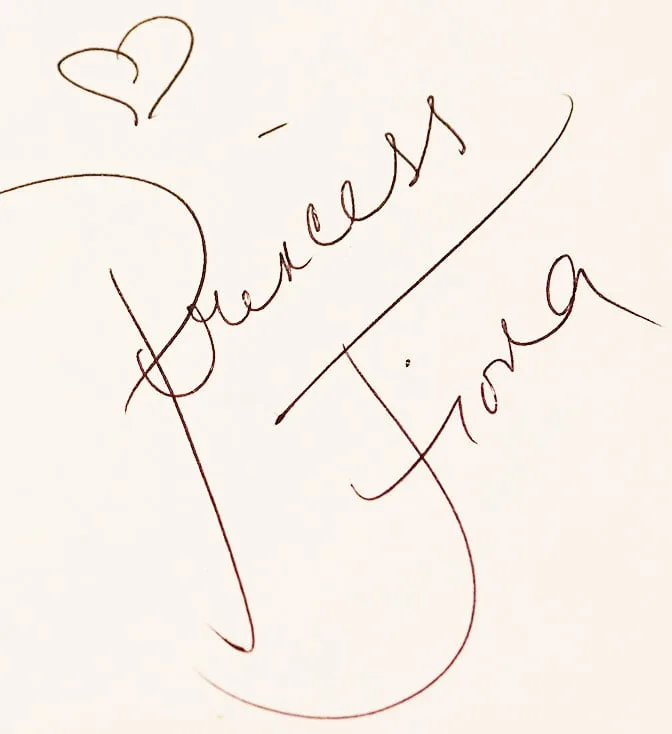 Princess
Fiona